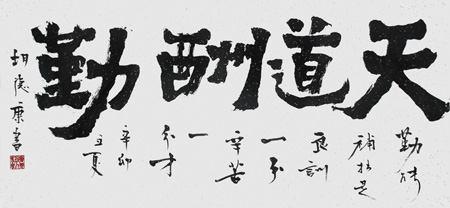 天道酬勤
勤能
補拙是
良訓
一分
辛苦
一
分才
辛卯
立夏
胡德康書